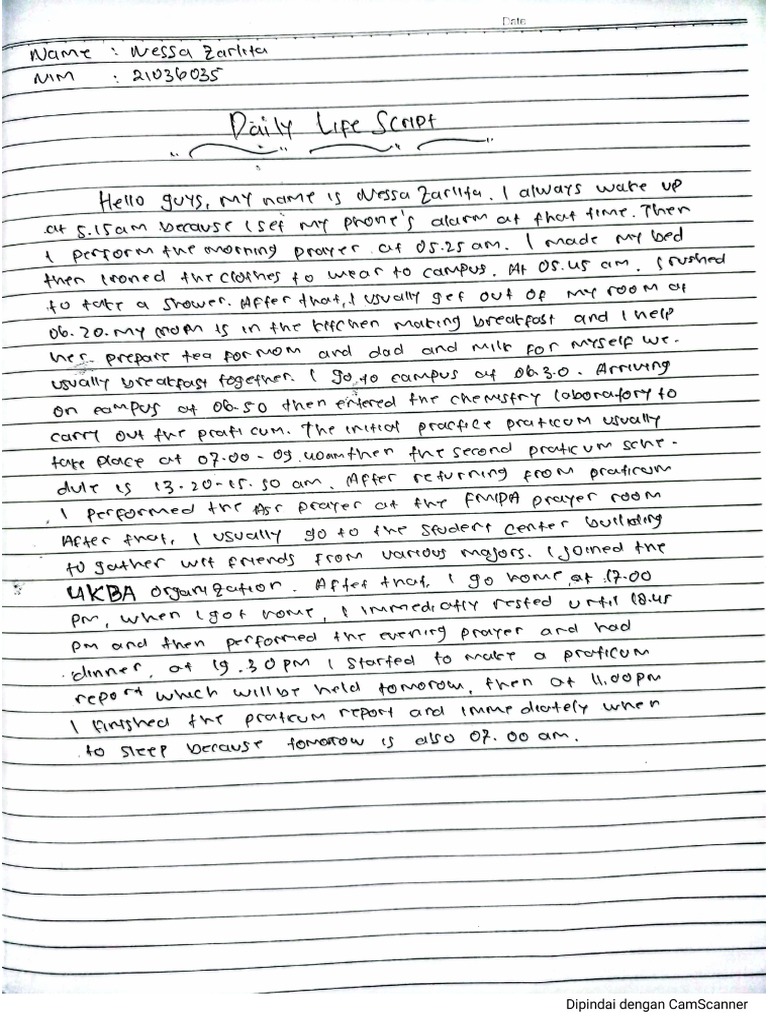 Date
Name : Nessa Zarlita
NIM : 21036035
Daily Life Script
Hello guys, my name is Nessa Zarlita. I always wake up
at 5.15 am because I set my phone's alarm at that time. Then
I perform the morning prayer at 05.25 am. I made my bed
then Ironed the clothes to wear to campus. At 05.45 am. I rushed
to take a shower. After that, I usually get out of my room at
06.20. My mom is in the kitchen making breakfast and I help
her prepare tea for mom and dad and milk for myself we.
usually breakfast together. I go to campus at 06.30. Arriving
on campus at 06.50 then entered the chemistry laboratory to
carry out the praticum. The initial practice praticum usually
take place at 07.00 - 09.40am then the second praticum sche-
dule is 13.20-15.50 am. After returning from praticum
I performed the Asr prayer at the FMIPA prayer room
After that, I usually go to the student center building
to gather wit friends from various majors. I joined the
UKBA organization. After that, I go home at 17.00
pm, when I got home, I immediatly rested until 18.45
pm and then performed the evening prayer and had
dinner, at 19.30 pm I started to make a praticum
report which will be held tomorow, then at 11.00 pm
I finished the praticum report and immediately when
to sleep because tomorow is also 07.00 am.
Dipindai dengan CamScanner